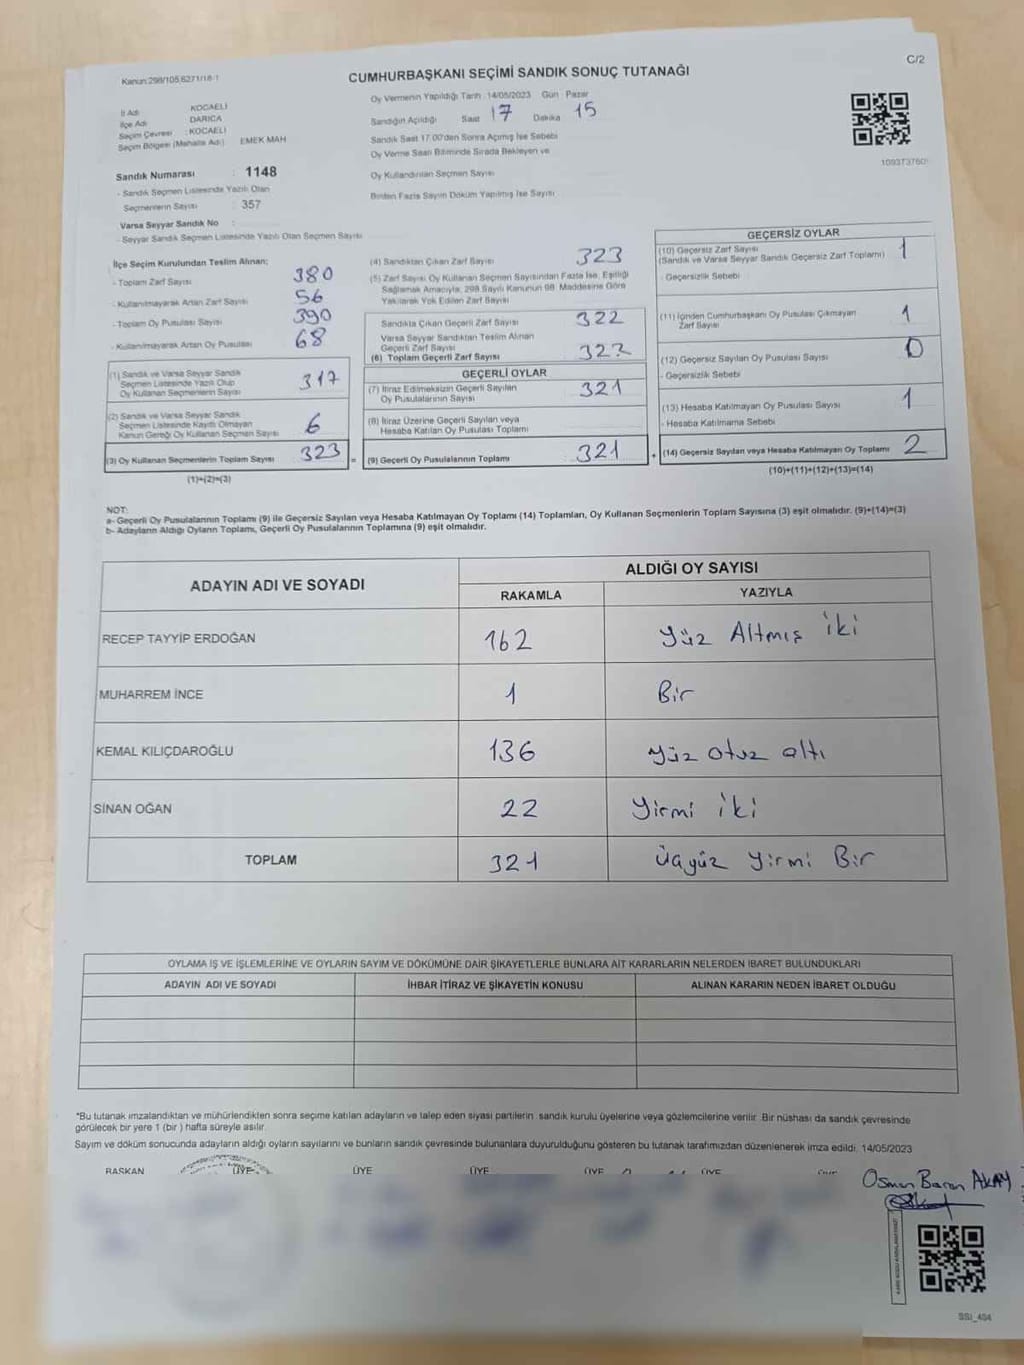 Kanun:298/105,6271/18-1
C/2
CUMHURBAŞKANI SEÇİMİ SANDIK SONUÇ TUTANAĞI
İl Adı KOCAELİ
İlçe Adı DARICA
Seçim Çevresi : KOCAELİ
Seçim Bölgesi (Mahalle Adı) EMEK MAH
Oy Vermenin Yapıldığı Tarih :14/05/2023 Gün : Pazar
Sandığın Açıldığı Saat 17 Dakika 15
Sandık Saat 17:00'den Sonra Açılmış İse Sebebi
Oy Verme Saati Bitiminde Sırada Bekleyen ve
Oy Kullandırılan Seçmen Sayısı
Birden Fazla Sayım Döküm Yapılmış İse Sayısı
Sandık Numarası : 1148
- Sandık Seçmen Listesinde Yazılı Olan
Seçmenlerin Sayısı : 357
Varsa Seyyar Sandık No :
- Seyyar Sandık Seçmen Listesinde Yazılı Olan Seçmen Sayısı
İlçe Seçim Kurulundan Teslim Alınan;
- Toplam Zarf Sayısı 380
- Kullanılmayarak Artan Zarf Sayısı 56
- Toplam Oy Pusulası Sayısı 390
- Kullanılmayarak Artan Oy Pusulası 68
(1) Sandık ve Varsa Seyyar Sandık
Seçmen Listesinde Yazılı Olup
Oy Kullanan Seçmenlerin Sayısı 317
(2) Sandık ve Varsa Seyyar Sandık
Seçmen Listesinde Kayıtlı Olmayan
Kanun Gereği Oy Kullanan Seçmen Sayısı 6
(3) Oy Kullanan Seçmenlerin Toplam Sayısı 323
(1)+(2)=(3)
(4) Sandıktan Çıkan Zarf Sayısı 323
(5) Zarf Sayısı Oy Kullanan Seçmen Sayısından Fazla İse, Eşitliği
Sağlamak Amacıyla, 298 Sayılı Kanunun 98. Maddesine Göre
Yakılarak Yok Edilen Zarf Sayısı
Sandıkta Çıkan Geçerli Zarf Sayısı 322
Varsa Seyyar Sandıktan Teslim Alınan
Geçerli Zarf Sayısı
(6) Toplam Geçerli Zarf Sayısı 322
GEÇERLİ OYLAR
(7) İtiraz Edilmeksizin Geçerli Sayılan
Oy Pusulalarının Sayısı 321
(8) İtiraz Üzerine Geçerli Sayılan veya
Hesaba Katılan Oy Pusulası Toplamı
= (9) Geçerli Oy Pusulalarının Toplamı : 321
109373760
GEÇERSİZ OYLAR
(10) Geçersiz Zarf Sayısı 1
(Sandık ve Varsa Seyyar Sandık Geçersiz Zarf Toplamı)
- Geçersizlik Sebebi
(11) İçinden Cumhurbaşkanı Oy Pusulası Çıkmayan
Zarf Sayısı 1
(12) Geçersiz Sayılan Oy Pusulası Sayısı 0
- Geçersizlik Sebebi
(13) Hesaba Katılmayan Oy Pusulası Sayısı 1
- Hesaba Katılmama Sebebi
+ (14) Geçersiz Sayılan veya Hesaba Katılmayan Oy Toplamı 2
(10)+(11)+(12)+(13)=(14)
NOT:
a- Geçerli Oy Pusulalarının Toplamı (9) ile Geçersiz Sayılan veya Hesaba Katılmayan Oy Toplamı (14) Toplamları, Oy Kullanan Seçmenlerin Toplam Sayısına (3) eşit olmalıdır. (9)+(14)=(3)
b- Adayların Aldığı Oyların Toplamı, Geçerli Oy Pusulalarının Toplamına (9) eşit olmalıdır.
ADAYIN ADI VE SOYADI
ALDIĞI OY SAYISI
RAKAMLA YAZIYLA
RECEP TAYYİP ERDOĞAN 162 Yüz Altmış İki
MUHARREM İNCE 1 Bir
KEMAL KILIÇDAROĞLU 136 Yüz otuz altı
SİNAN OĞAN 22 Yirmi iki
TOPLAM 321 Üçyüz Yirmi Bir
OYLAMA İŞ VE İŞLEMLERİNE VE OYLARIN SAYIM VE DÖKÜMÜNE DAİR ŞİKAYETLERLE BUNLARA AİT KARARLARIN NELERDEN İBARET BULUNDUKLARI
ADAYIN ADI VE SOYADI İHBAR İTİRAZ VE ŞİKAYETİN KONUSU ALINAN KARARIN NEDEN İBARET OLDUĞU
*Bu tutanak imzalandıktan ve mühürlendikten sonra seçime katılan adayların ve talep eden siyasi partilerin sandık kurulu üyelerine veya gözlemcilerine verilir. Bir nüshası da sandık çevresinde
görülecek bir yere 1 (bir) hafta süreyle asılır.
Sayım ve döküm sonucunda adayların aldığı oyların sayılarını ve bunların sandık çevresinde bulunanlara duyurulduğunu gösteren bu tutanak tarafımızdan düzenlenerek imza edildi. 14/05/2023
BAŞKAN ÜYE ÜYE ÜYE ÜYE ÜYE
Osman Baran AKAY
SSI_404